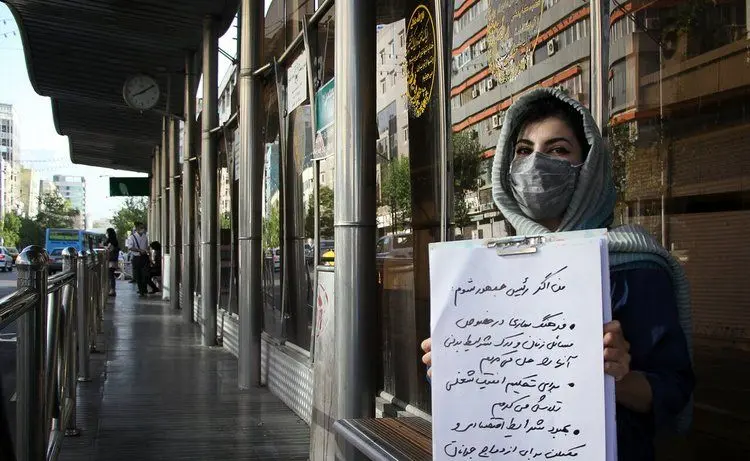 من اگر رئیس جمهور شوم:
• فرهنگ سازی در خصوص
مسائل زنان و درک شرایط بدنی
آنها را می کردم
• برای تحکیم امنیت شغلی
تلاش می کردم
• بهبود شرایط اقتصادی و
مسکن برای ازدواج جوانان